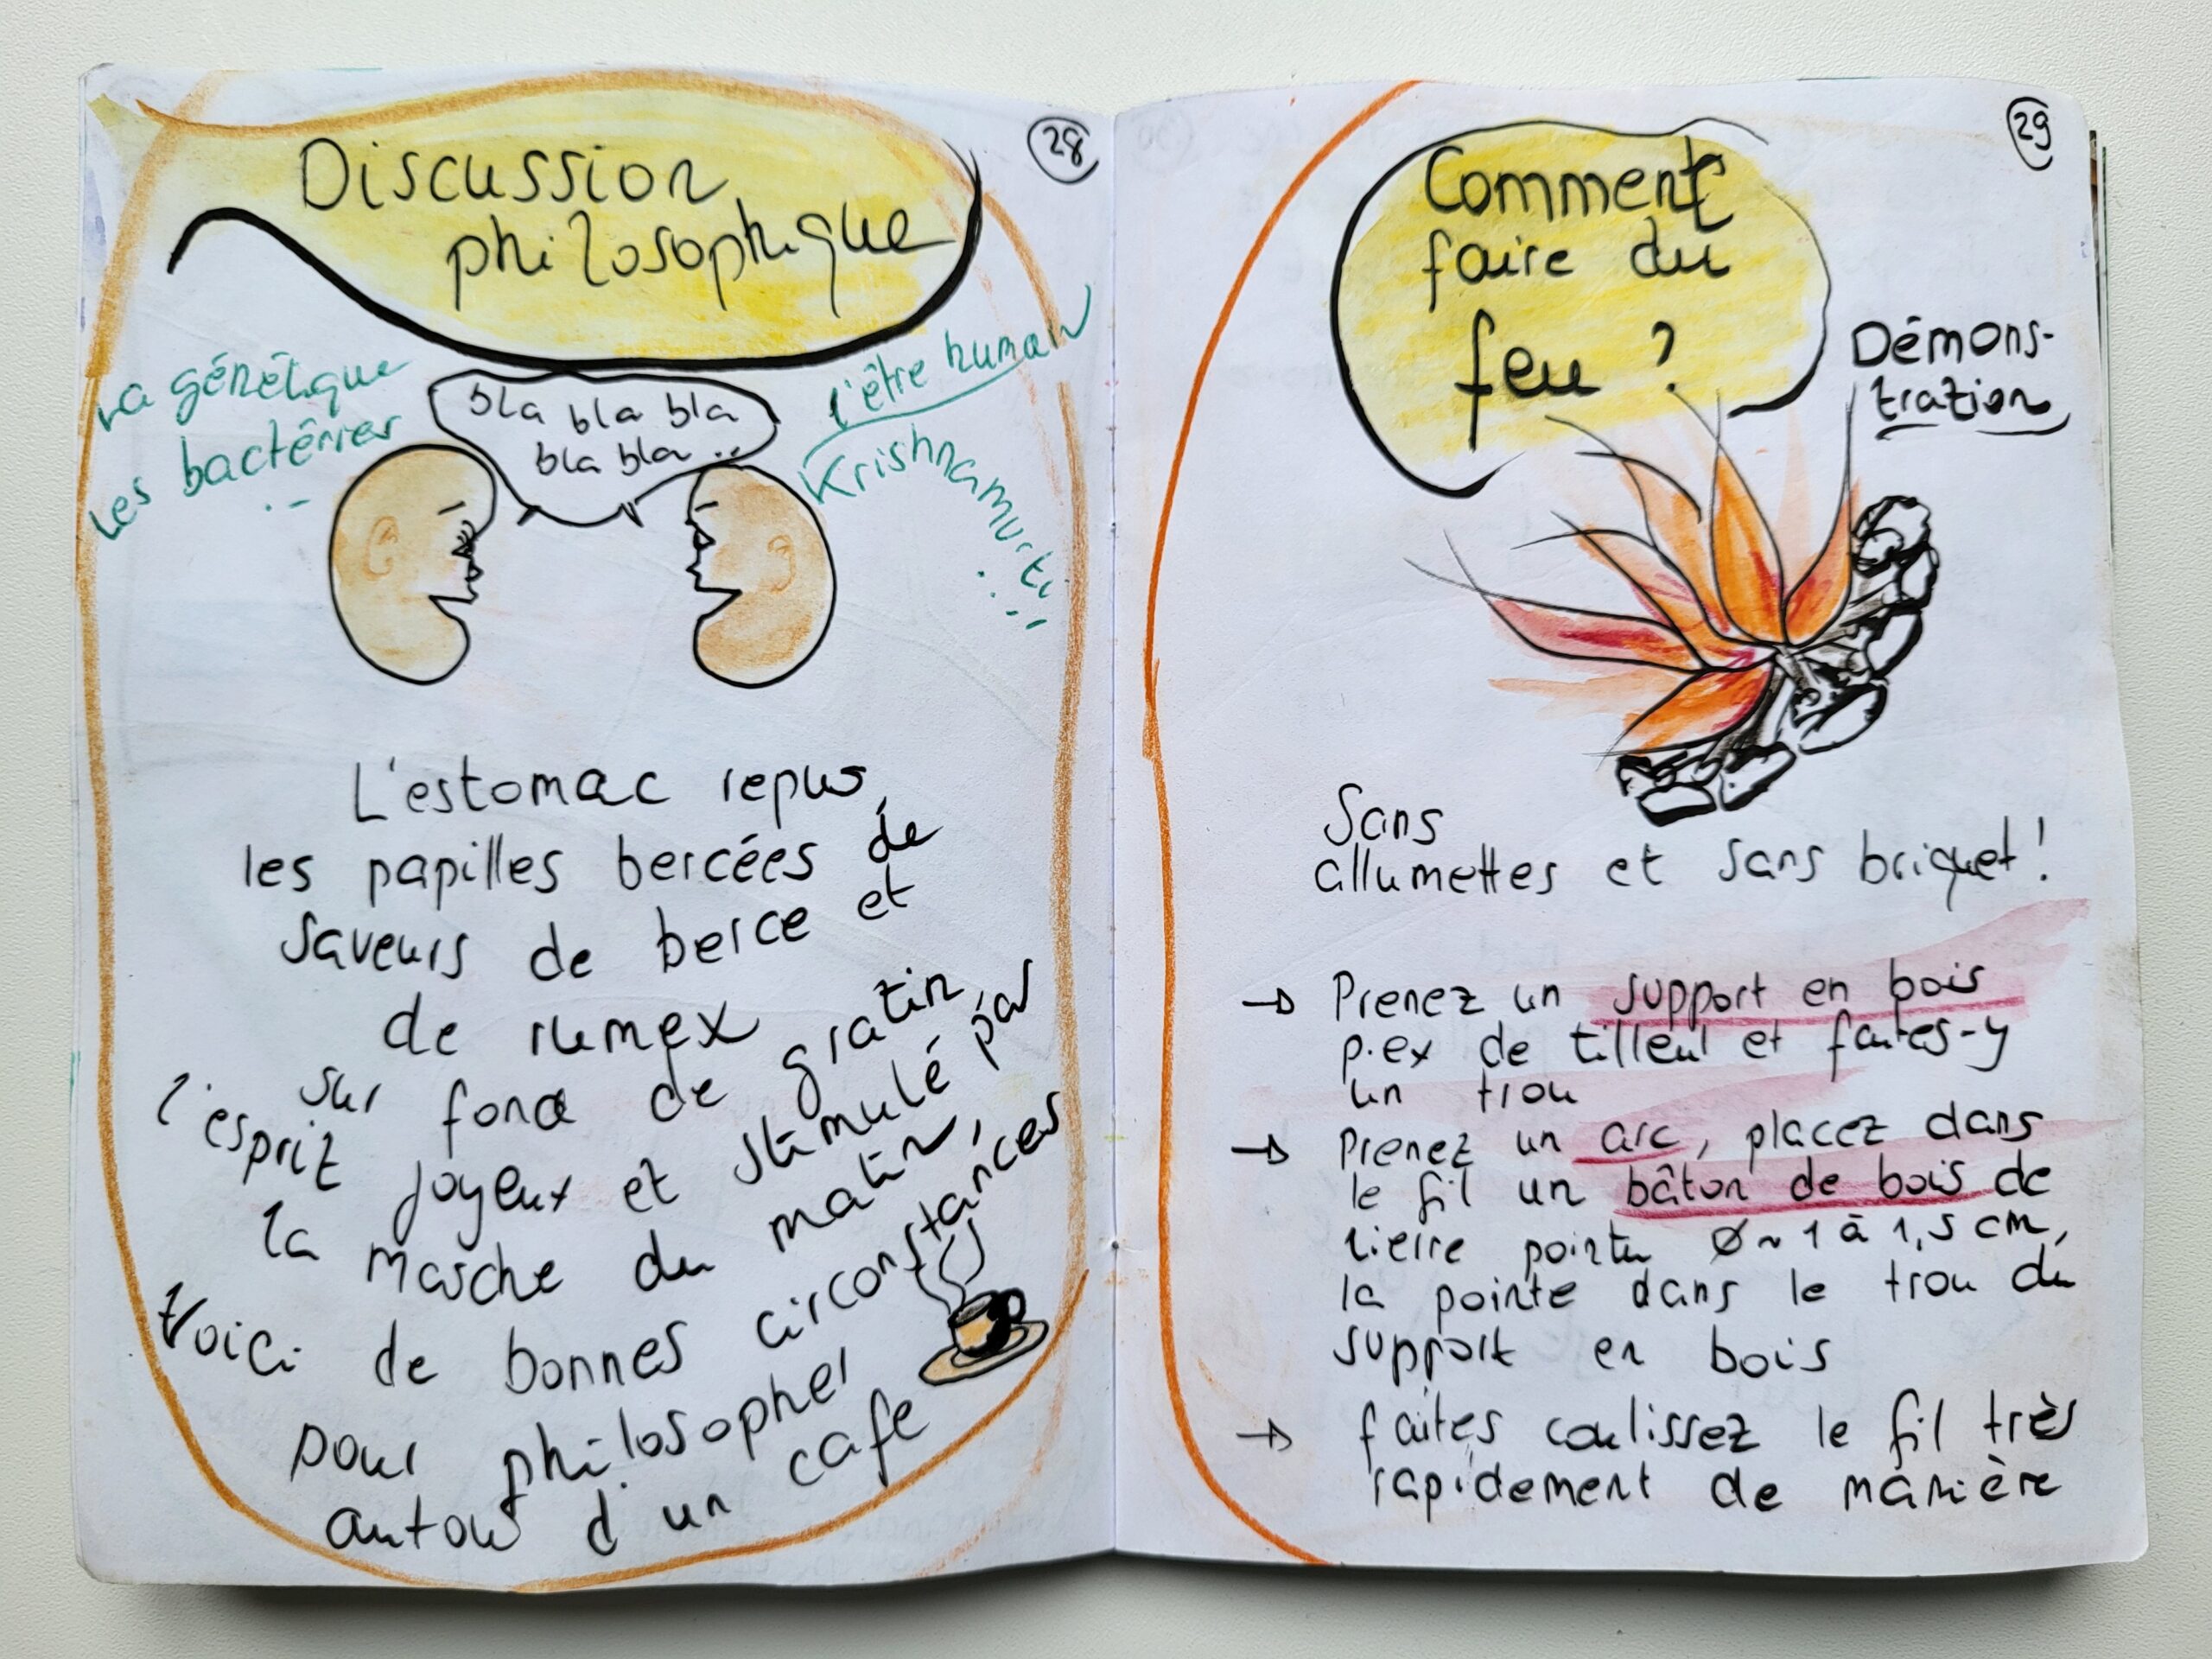 28
Discussion
philosophique
La génétique
Les bactéries
..
bla bla bla
bla bla ..
l'être humain
Krishnamurti
...
L'estomac repus,
les papilles bercées de
saveurs de berce et
de rumex
sur fond de gratin
l'esprit joyeux et stimulé par
la marche du matin,
Voici de bonnes circonstances
pour philosopher
autour d'un café
29
Comment
faire du
feu ?
Démons-
tration
Sans
allumettes et sans briquet !
→ Prenez un support en bois
p.ex de tilleul et faites-y
un trou
→ Prenez un arc, placez dans
le fil un bâton de bois de
lierre pointu ∅ ~ 1 à 1,5 cm,
la pointe dans le trou du
support en bois
→ faites coulissez le fil très
rapidement de manière